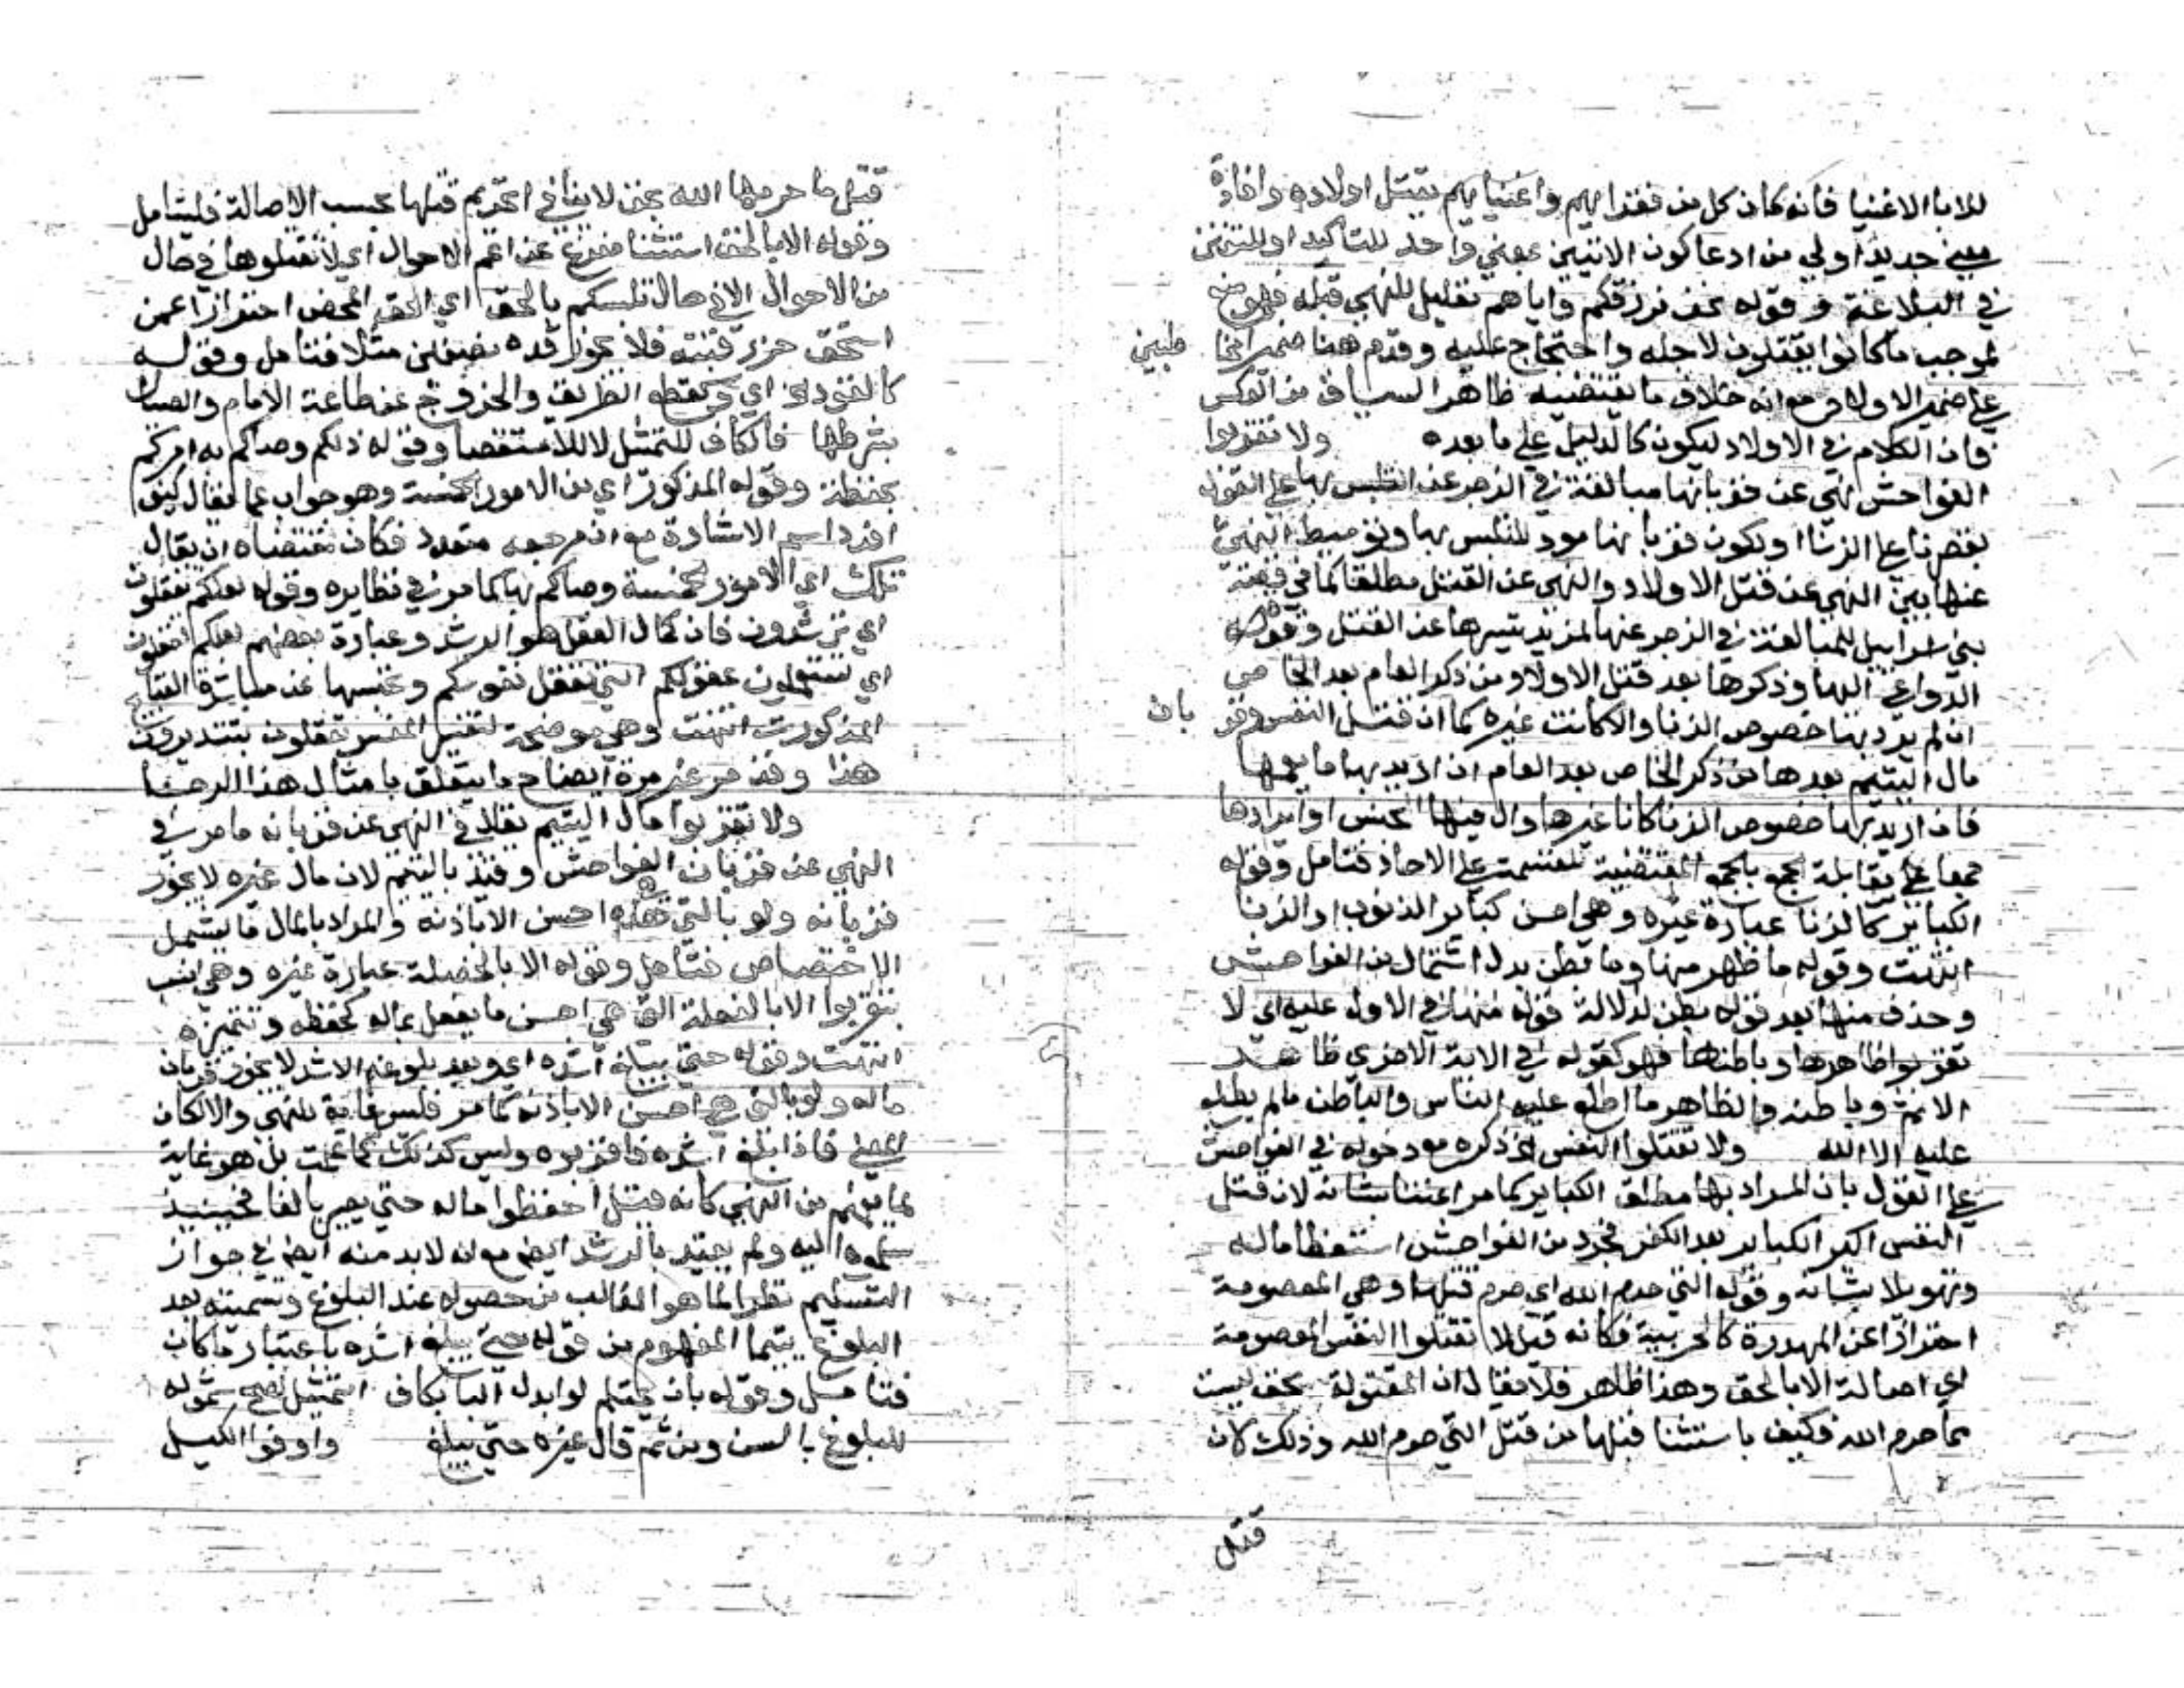 للابا الاغنيا فانه كان كل من فقرايهم واغنيايهم يقتل اولاده وافادة
معني جديد اولي من ادعا كون الاثنين بمعني واحد للتاكيد او للتفنن
في البلاغة وقوله نحن نرزقكم واياهم تعليل للنهي قبله
لموجب ما كانوا يقتلون لاجله واحتجاج عليه وقدم هنا ضمير
علي ضمير الاولاد مع انه خلاف ما يقتضيه ظاهر السياق من العكس
فان الكلام في الاولاد ليكون كالدليل علي ما بعده ولا تقربوا
الفواحش نهي عن قربانها مبالغة في الزجر عن التلبس بها علي القول
بقصرها علي الزنا او لكون قربانها مود للتلبس بها وتوسيط النهي
عنها بين النهي عن قتل الاولاد والنهي عن القتل مطلقا كما في قصة
بني اسراييل للمبالغة في الزجر عنها لمزيد تيسرها عن القتل وقوله
الدواعي اليها وذكرها بعد قتل الاولاد من ذكر العام بعد الخاص
ان لم يرد بها خصوص الزنا والا كانت غيره كما ان قتل النفس وقربان
مال اليتيم بعدها من ذكر الخاص بعد العام ان اريد بها ما يعمها
فان اريد بها خصوص الزنا كانا غيرها وال فيها للجنس او ايرادها
جمعا علي مقابلة الجمع بالجمع المقتضية للقسمة علي الاحاد فتامل وقوله
الكباير كالزنا عبارة غيره وهي احسن كباير الذنوب او الزنا
انتهت وقوله ما ظهر منها وما بطن بدل اشتمال من الفواحش
وحذف منها بعد قوله بطن لدلالة قوله منها في الاول عليه اي لا
تقربوا ظاهرها وباطنها فهو كقوله في الاية الاخري ظاهر
الاثم وباطنه والظاهر ما اطلع عليه الناس والباطن ما لم يطلع
عليه الا الله ولا تقتلوا النفس الخ ذكره مع دخوله في الفواحش
علي القول بان المراد بها مطلق الكباير كما مر اعتنا بشانه لان قتل
النفس اكبر الكباير بعد الكفر فجرد من الفواحش استعظاما له
وتهويلا بشانه وقوله التي حرم الله اي حرم قتلها وهي المعصومة
احترازا عن المهدرة كالحربية فكانه قيل لا تقتلوا النفس المعصومة
اي اصالة الا بالحق وهذا ظاهر فلا يقال ان المقتولة بحق ليست
مما حرم الله فكيف باستثنا قتلها من قتل التي حرم الله وذلك لان
قتل
قتل ما حرمها الله بحق لا ينافي تحريم قتلها بحسب الاصالة فليتامل
وقوله الا بالحق استثنا مفرغ عن اعم الاحوال اي لا تقتلوها في حال
من الاحوال الا في حال تلبسكم بالحق اي الحق المحض احترازا عمن
استحق حز رقبته فلا يجوز قده نصفين مثلا فتامل وقوله
كالقود الخ اي وكقطع الطريق والخروج عن طاعة الامام والصيال
بشرطها فالكاف للتمثيل لا للاستقصا وقوله ذلكم وصاكم به امركم
بحفظه وقوله المذكور اي من الامور الخمسة وهو جواب عما يقال كيف
افرد اسم الاشارة مع ان مرجعه متعدد فكان مقتضاه ان يقال
تلك اي الامور الخمسة وصاكم بها كما مر في نظايره وقوله لعلكم تعقلون
اي ترشدون فان كمال العقل هو الرشد وعبارة بعضهم لعلكم تعقلون
اي تستعملون عقولكم التي تعقل نفوسكم وتحبسها عن مباشرة القبايح
المذكورت انتهت وهي موضحة لتفسير المفسر تعقلون بتتدبرون
هذا وقد مر غير مرة ايضاح ما يتعلق بامثال هذا الرجا
ولا تقربوا مال اليتيم يقال في النهي عن قربانه ما مر في
النهي عن قربان الفواحش وقيد باليتيم لان مال غيره لا يجوز
قربانه ولو بالتي هي احسن الا باذنه والمراد بالمال ما يشمل
الاختصاص فتامل وقوله الا بالخصلة عبارة غيره وهي انسب
بتقربوا الا بالفعلة التي هي احسن ما يفعل بماله كحفظه وتثميره
انتهت وقوله حتي يبلغ اشده اي وبعد بلوغه الاشد لا يجوز قربان
ماله ولو بالتي هي احسن الا باذنه كما مر فليس غاية للنهي والا لكان
المعني فاذا بلغ اشده فاقربوه وليس كذلك كما علمت بل هو غاية
لما يفهم من النهي كانه قيل احفظوا ماله حتي يصير بالغا فحينيذ
سلموه اليه ولم يقيد بالرشد ايضا مع انه لا بد منه ايضا في جواز
التسليم نظرا لما هو الغالب من حصوله عند البلوغ وتسميته بعد
البلوغ يتيما المفهوم من قوله حتي يبلغ اشده باعتبار ما كان
فتامل وقوله بان يحتلم لو ابدل البا بكاف التمثيل لصح شموله
للبلوغ بالسن ومن ثم قال غيره حتي يبلغ واوفوا الكيل